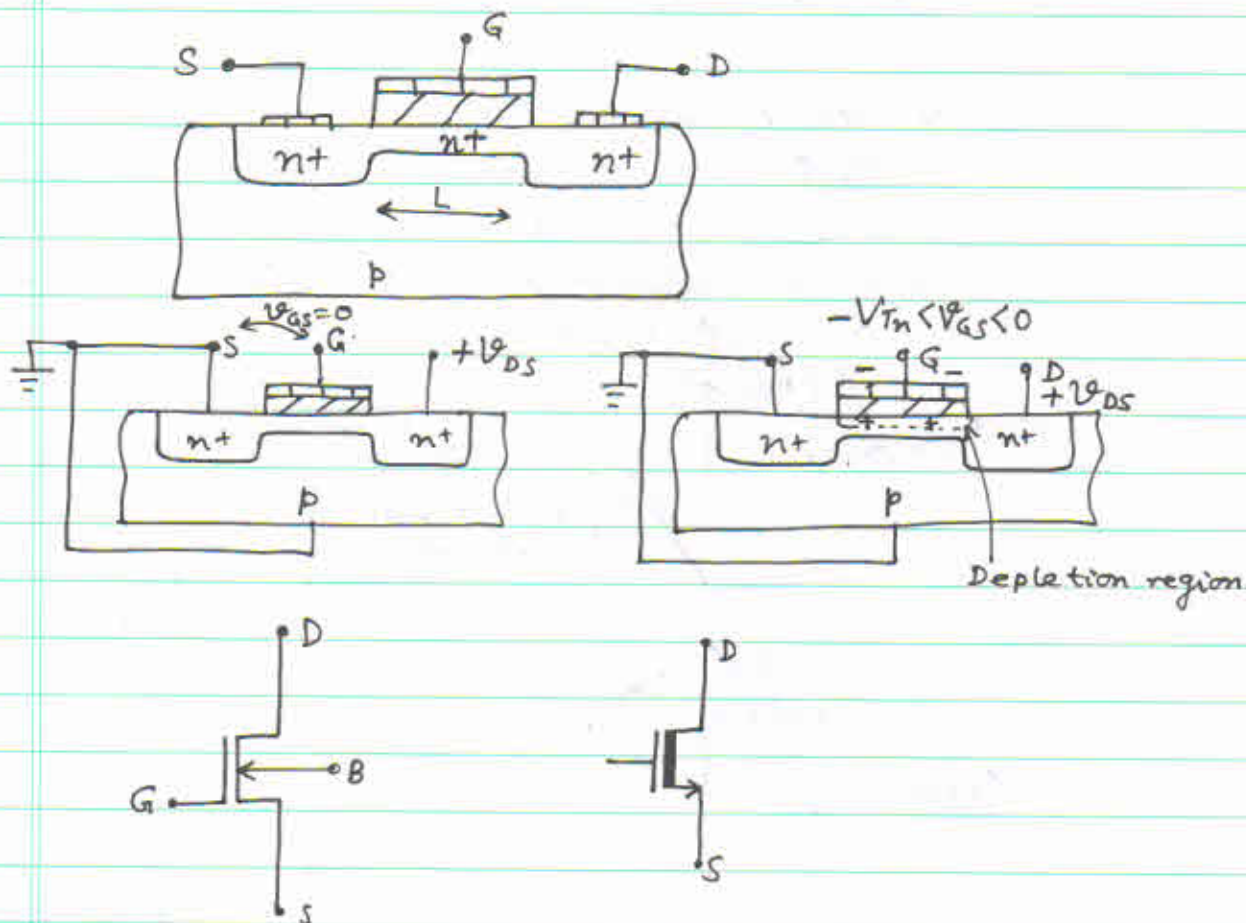 G
S D
n+ n+ n+
L
p
v_GS=0
S G +v_DS
n+ n+
p
-V_Tn < v_GS < 0
S - G - D
+v_DS
+ +
n+ n+
p
Depletion region
D
B
G
S
D
S